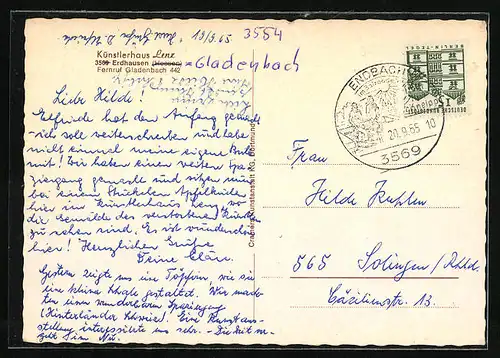 3554
Künstlerhaus Lenz
3569 Erdhausen (Hessen) = Gladenbach
Fernruf Gladenbach 442
Liebe Hilde!
Elfriede hat den Anfang gemacht
ich soll weiterschreiben und habe
nicht einmal meine eigene Brille
mit! Wir haben einen weiten Spa-
ziergang gemacht und sitzen nun
bei einem Stückchen Apfelkuchen
hier im Künstlerhaus Lenz, wo
die Gemälde des verstorbenen Künstlers
zu sehen sind. Es ist wunderschön
hier! Herzlichen Grüße
Deine Cläre.
Gestern zeigte uns eine Töpferin, wie sie
eine kleine Schale gestaltet. Wir mach-
ten einen wunderbaren Spaziergang
(Hinterländer Schweiz). Eine Kunstaus-
stellung interessierte uns sehr. - Die Zeit ver-
geht im Nu.
ENDBACH
Kneipp
20.9.65. 10
3569
DEUTSCHE BUNDESPOST
BERLIN-TEGEL
15
Frau
Hilde Kuhlen
565 Solingen/Rhld.
Cäcilienstr. 13.